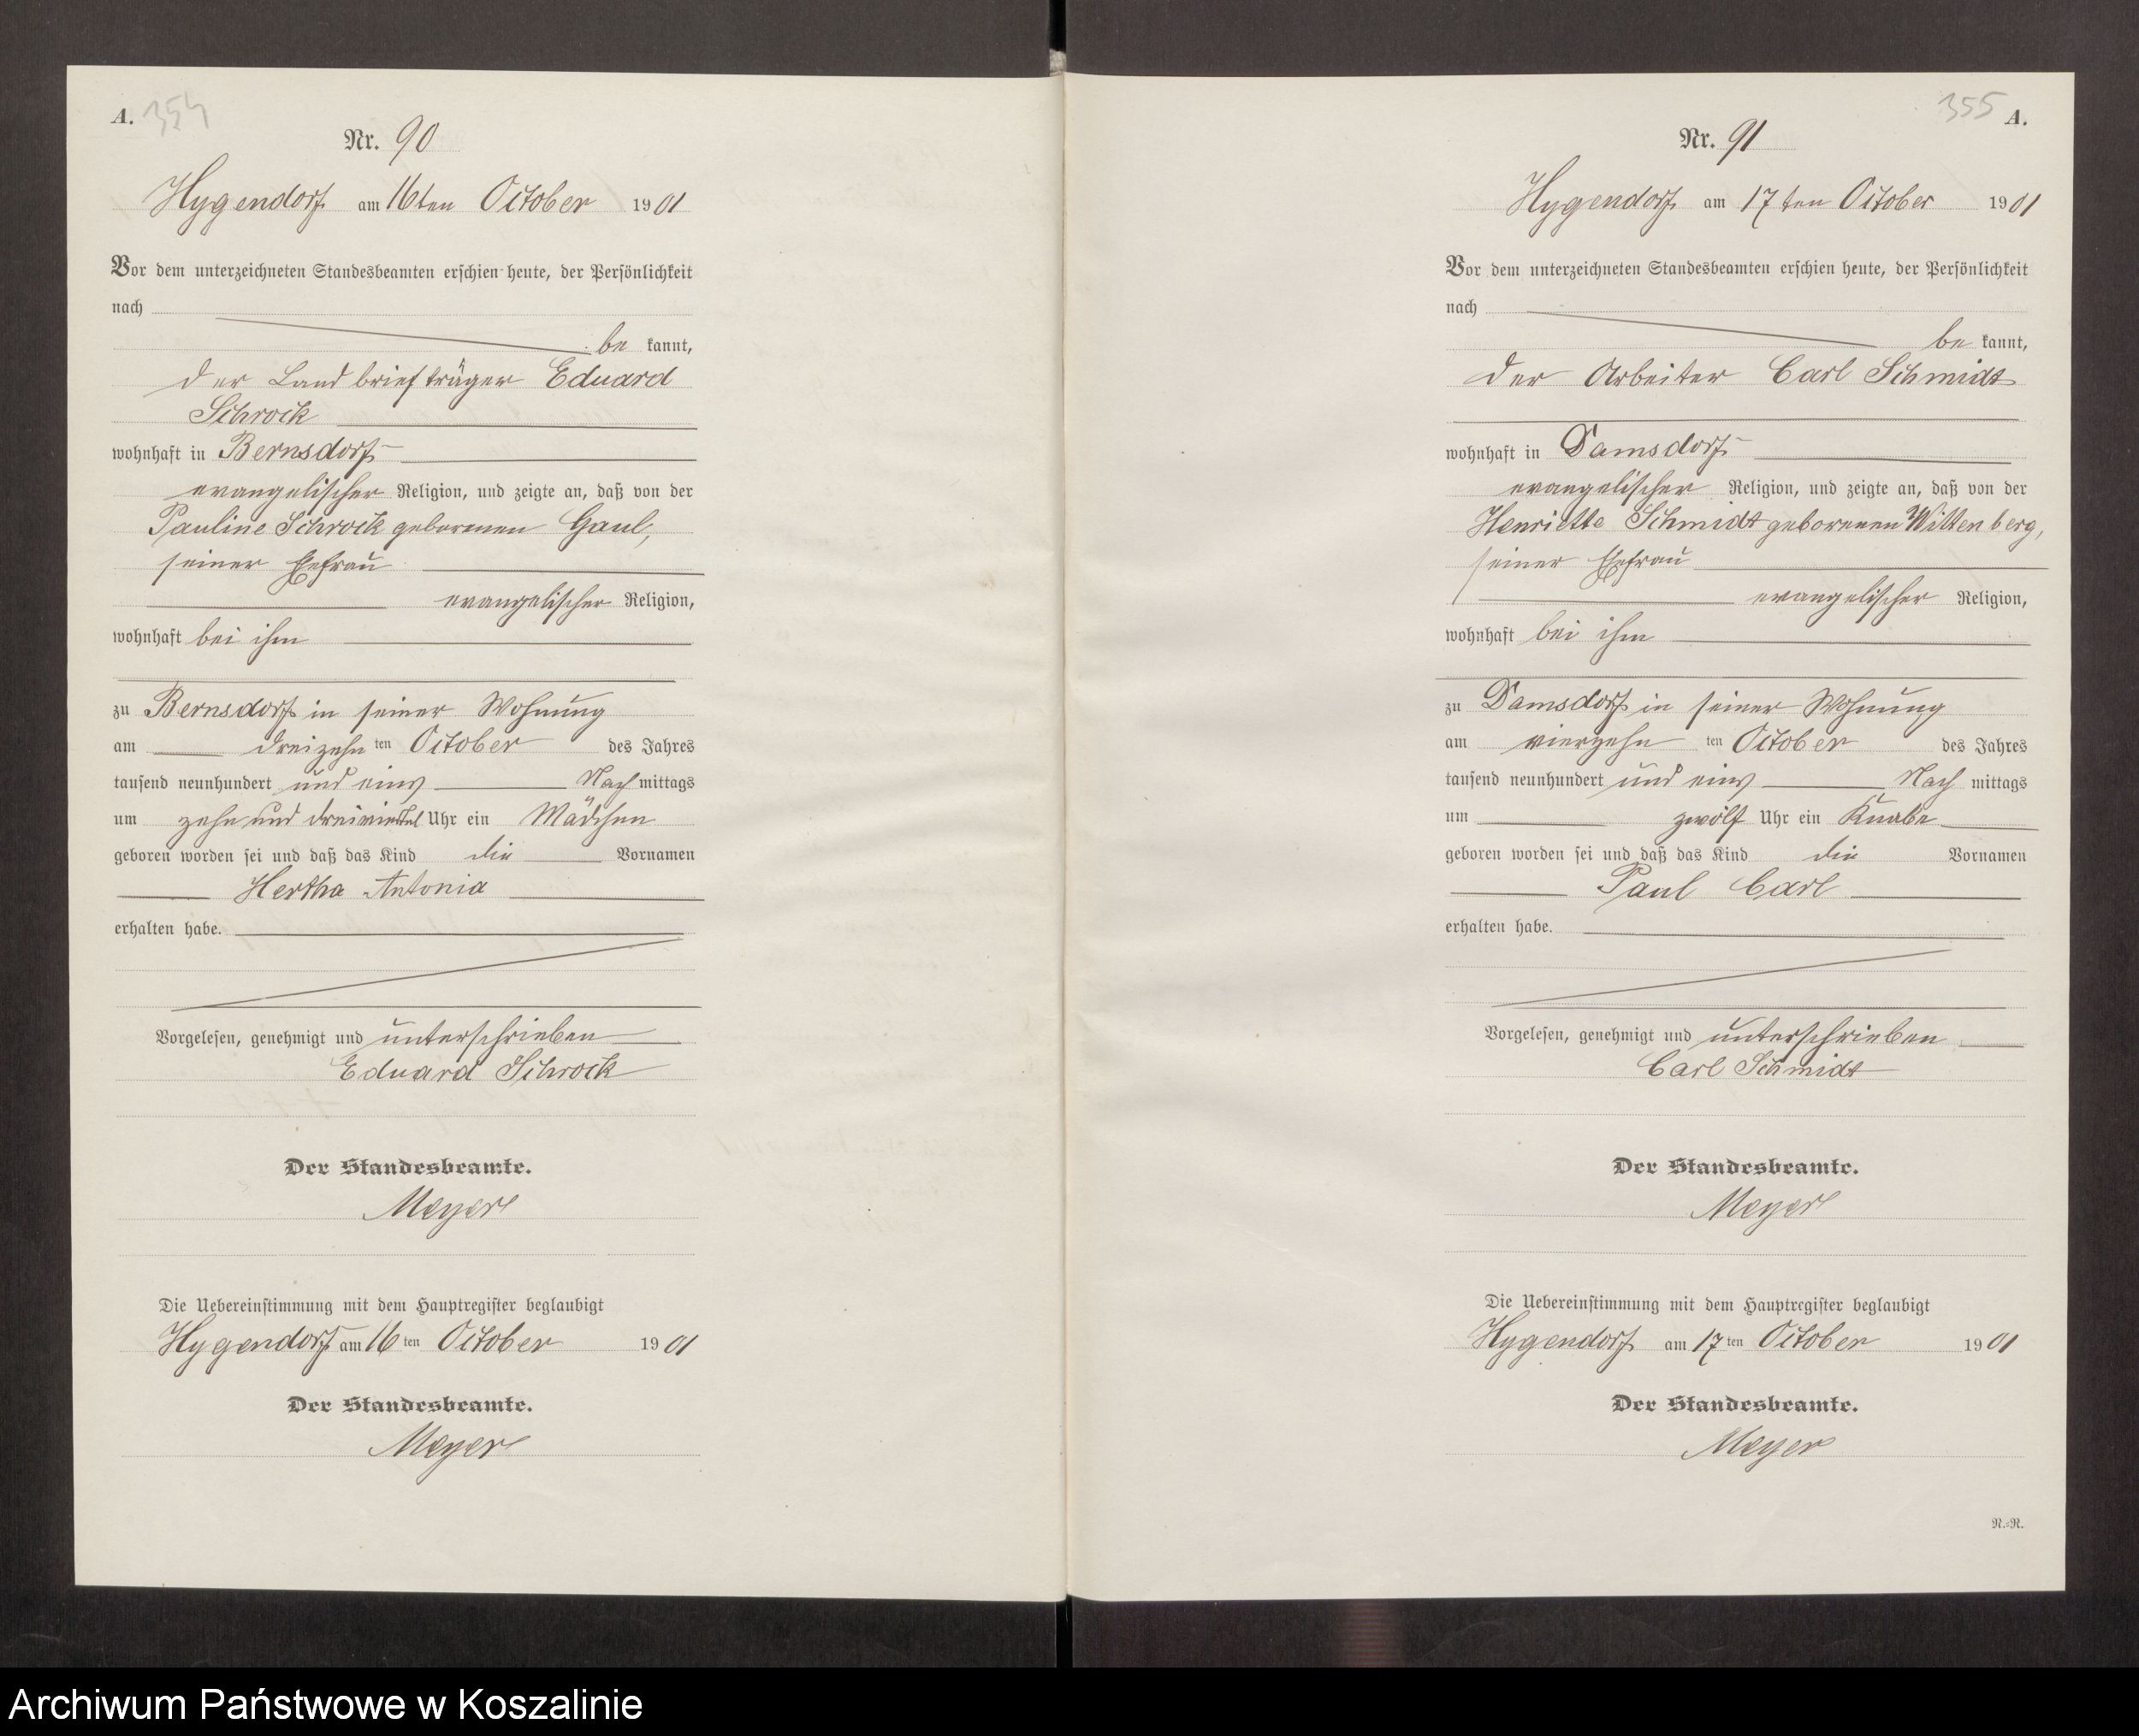 A. 354
Nr. 90
Hygendorf am 16ten October 1901
Vor dem unterzeichneten Standesbeamten erschien heute, der Persönlichkeit
nach
be kannt,
der Landbriefträger Eduard
Schrock
wohnhaft in Bernsdorf
evangelischer Religion, und zeigte an, daß von der
Pauline Schrock geborenen Gaul,
seiner Ehefrau
evangelischer Religion,
wohnhaft bei ihm
zu Bernsdorf in seiner Wohnung
am dreizehn ten October des Jahres
tausend neunhundert und eins Nach mittags
um zehn und dreiviertel Uhr ein Mädchen
geboren worden sei und daß das Kind die Vornamen
Hertha Antonia
erhalten habe.
Vorgelesen, genehmigt und unterschrieben
Eduard Schrock
Der Standesbeamte.
Meyer
Die Uebereinstimmung mit dem Hauptregister beglaubigt
Hygendorf am 16 ten October 1901
Der Standesbeamte.
Meyer
355 A.
Nr. 91
Hygendorf am 17ten October 1901
Vor dem unterzeichneten Standesbeamten erschien heute, der Persönlichkeit
nach
be kannt,
der Arbeiter Carl Schmidt
wohnhaft in Damsdorf
evangelischer Religion, und zeigte an, daß von der
Henriette Schmidt geborenen Wittenberg,
seiner Ehefrau
evangelischer Religion,
wohnhaft bei ihm
zu Damsdorf in seiner Wohnung
am vierzehn ten October des Jahres
tausend neunhundert und eins Nach mittags
um zwölf Uhr ein Knabe
geboren worden sei und daß das Kind die Vornamen
Paul Carl
erhalten habe.
Vorgelesen, genehmigt und unterschrieben
Carl Schmidt
Der Standesbeamte.
Meyer
Die Uebereinstimmung mit dem Hauptregister beglaubigt
Hygendorf am 17 ten October 1901
Der Standesbeamte.
Meyer
R.-R.
Archiwum Państwowe w Koszalinie